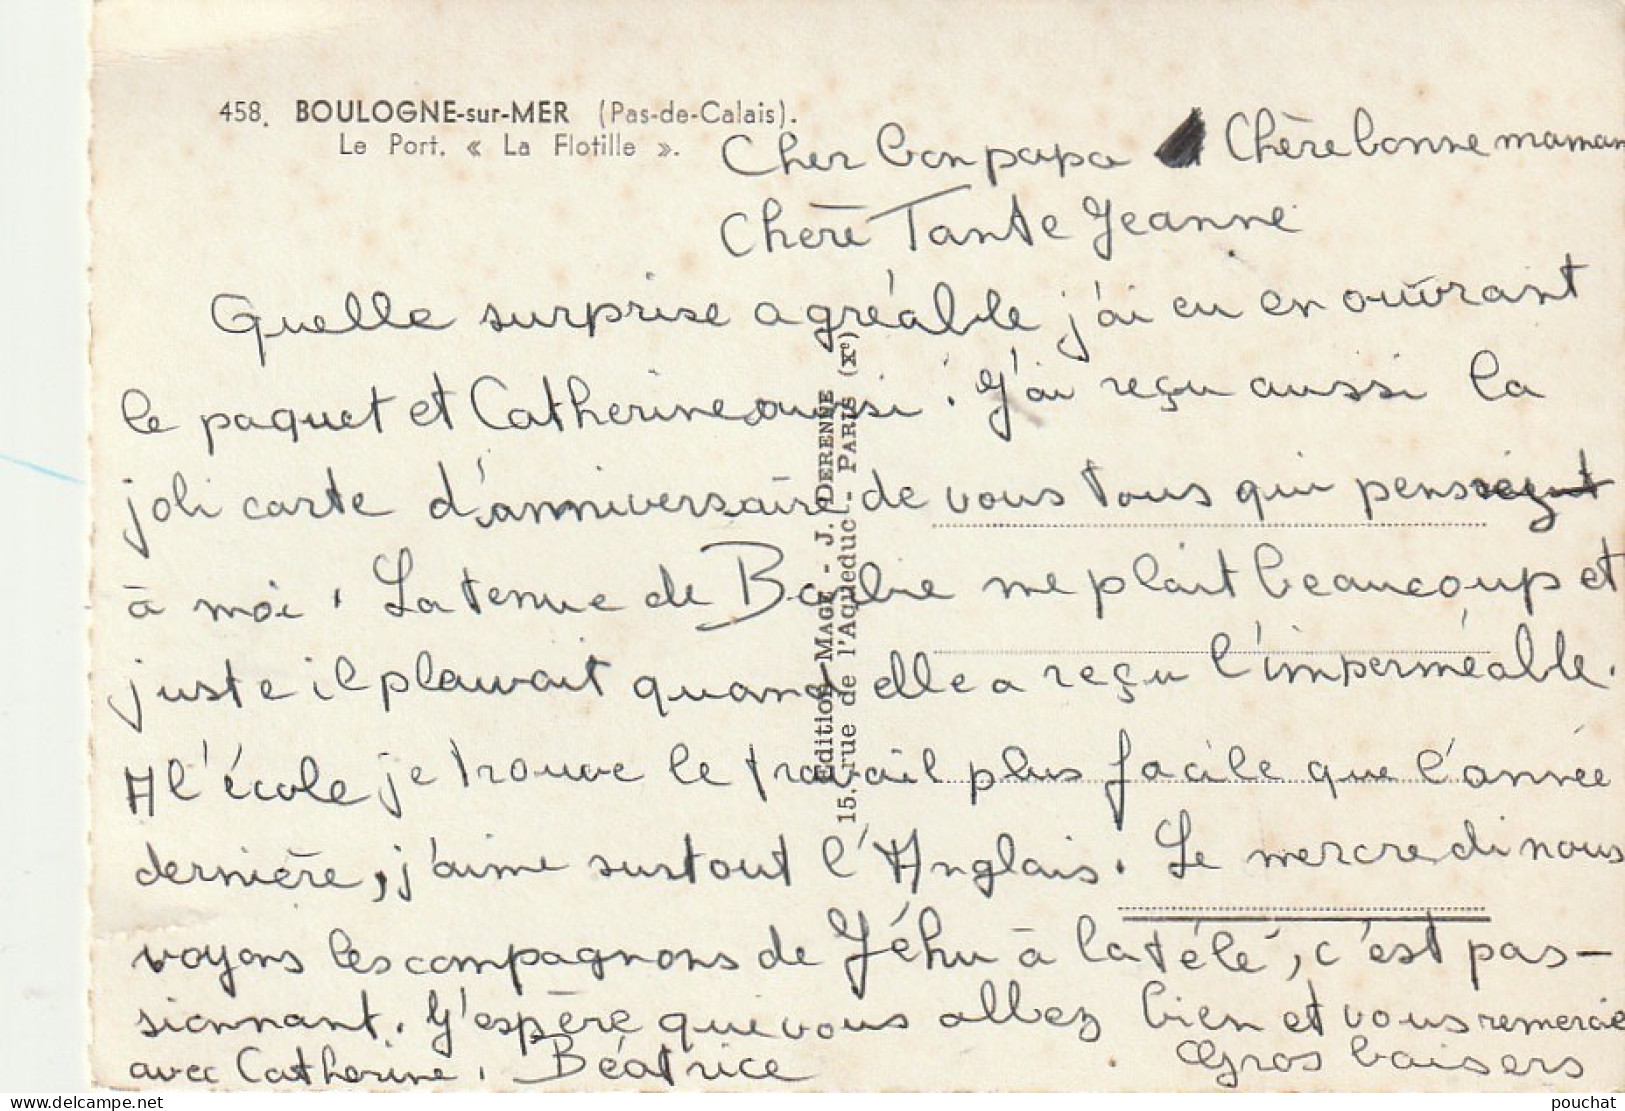 458. BOULOGNE-sur-MER (Pas-de-Calais).
Le Port. « La Flotille ».
Cher bon papa Chère bonne maman
Chère Tante Jeanne
Quelle surprise agréable j'ai eu en ouvrant
le paquet et Catherine aussi. J'ai reçu aussi la
joli carte d'anniversaire de vous tous qui pensiez
à moi. La tenue de Barbie me plait beaucoup et
juste il pleuvait quand elle a reçu l'imperméable.
A l'école je trouve le travail plus facile que l'année
dernière, j'aime surtout l'Anglais. Le mercredi nous
voyons les compagnons de Jéhu à la télé, c'est pas-
sionnant. J'espère que vous allez bien et vous remercie
avec Catherine. Béatrice Gros baisers
Edition MAGE - J. DERENNE
15, rue de l'Aqueduc - PARIS (Xe)
pouchat